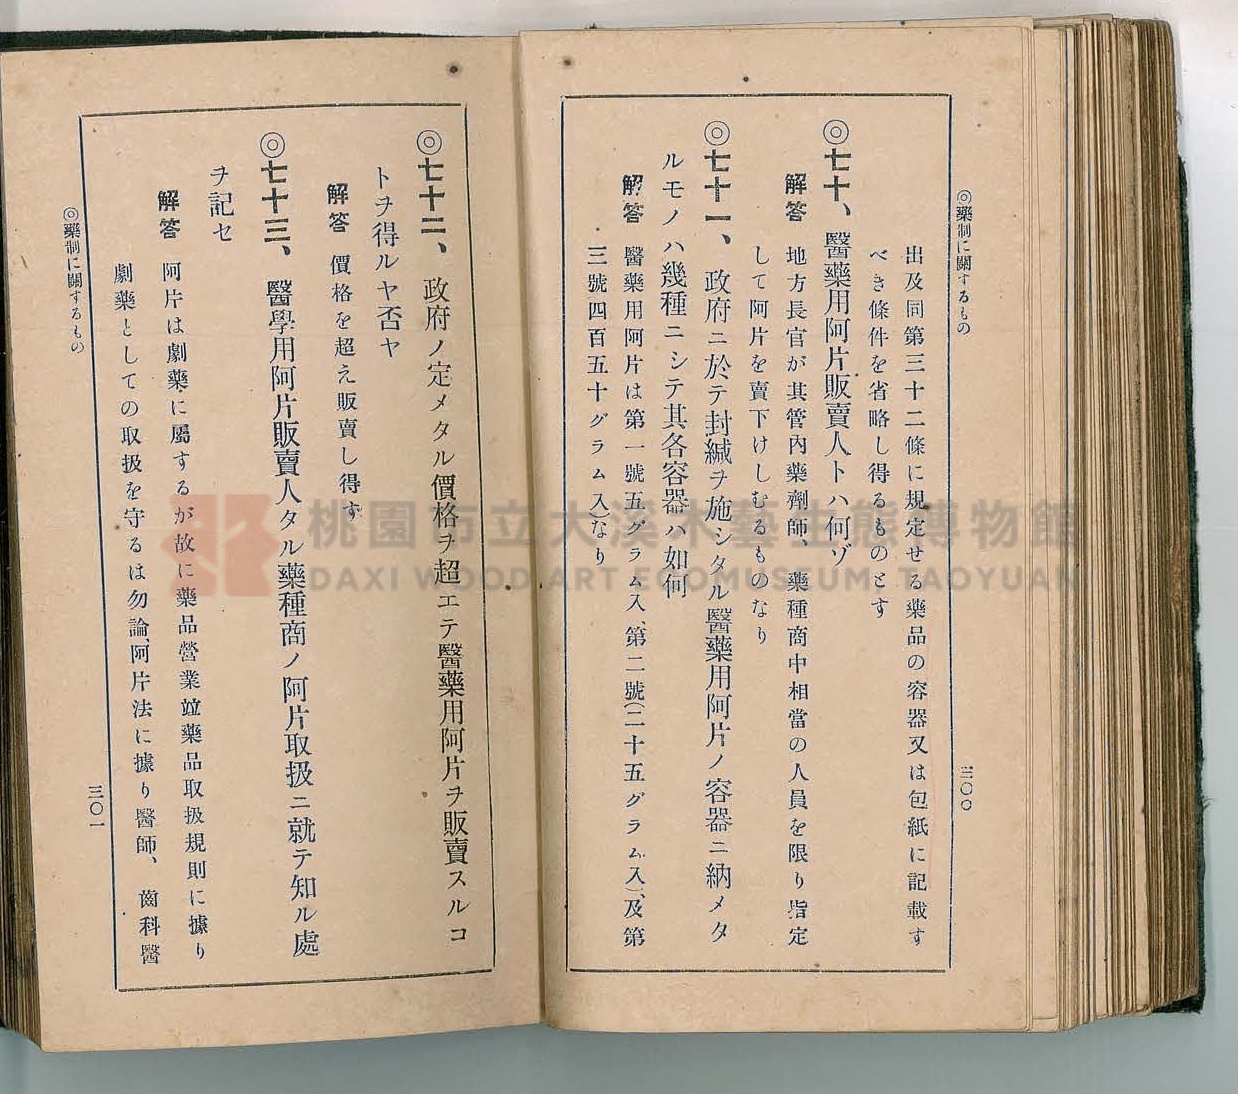 ◎藥制に關するもの
三〇〇
出及同第三十二條に規定せる藥品の容器又は包紙に記載す
べき條件を省略し得るものとす
◎七十、醫藥用阿片販賣人トハ何ゾ
解答 地方長官が其管內藥劑師、藥種商中相當の人員を限り指定
して阿片を賣下けしむるものなり
◎七十一、政府ニ於テ封緘ヲ施シタル醫藥用阿片ノ容器ニ納メタ
ルモノハ幾種ニシテ其各容器ハ如何
解答 醫藥用阿片は第一號五グラム入、第二號(二十五グラム入)、及第
三號四百五十グラム入)なり
◎七十二、政府ノ定メタル價格ヲ超エテ醫藥用阿片ヲ販賣スルコ
トヲ得ルヤ否ヤ
解答 價格を超え販賣し得ず
◎七十三、醫學用阿片販賣人タル藥種商ノ阿片取扱ニ就テ知ル處
ヲ記セ
解答 阿片は劇藥に屬するが故に藥品營業竝藥品取扱規則に據り
劇藥としての取扱を守るは勿論、阿片法に據り醫師、齒科醫
◎藥制に關するもの
三〇一
桃園市立大溪木藝生態博物館
DAXI WOOD ART ECOMUSEUM, TAOYUAN